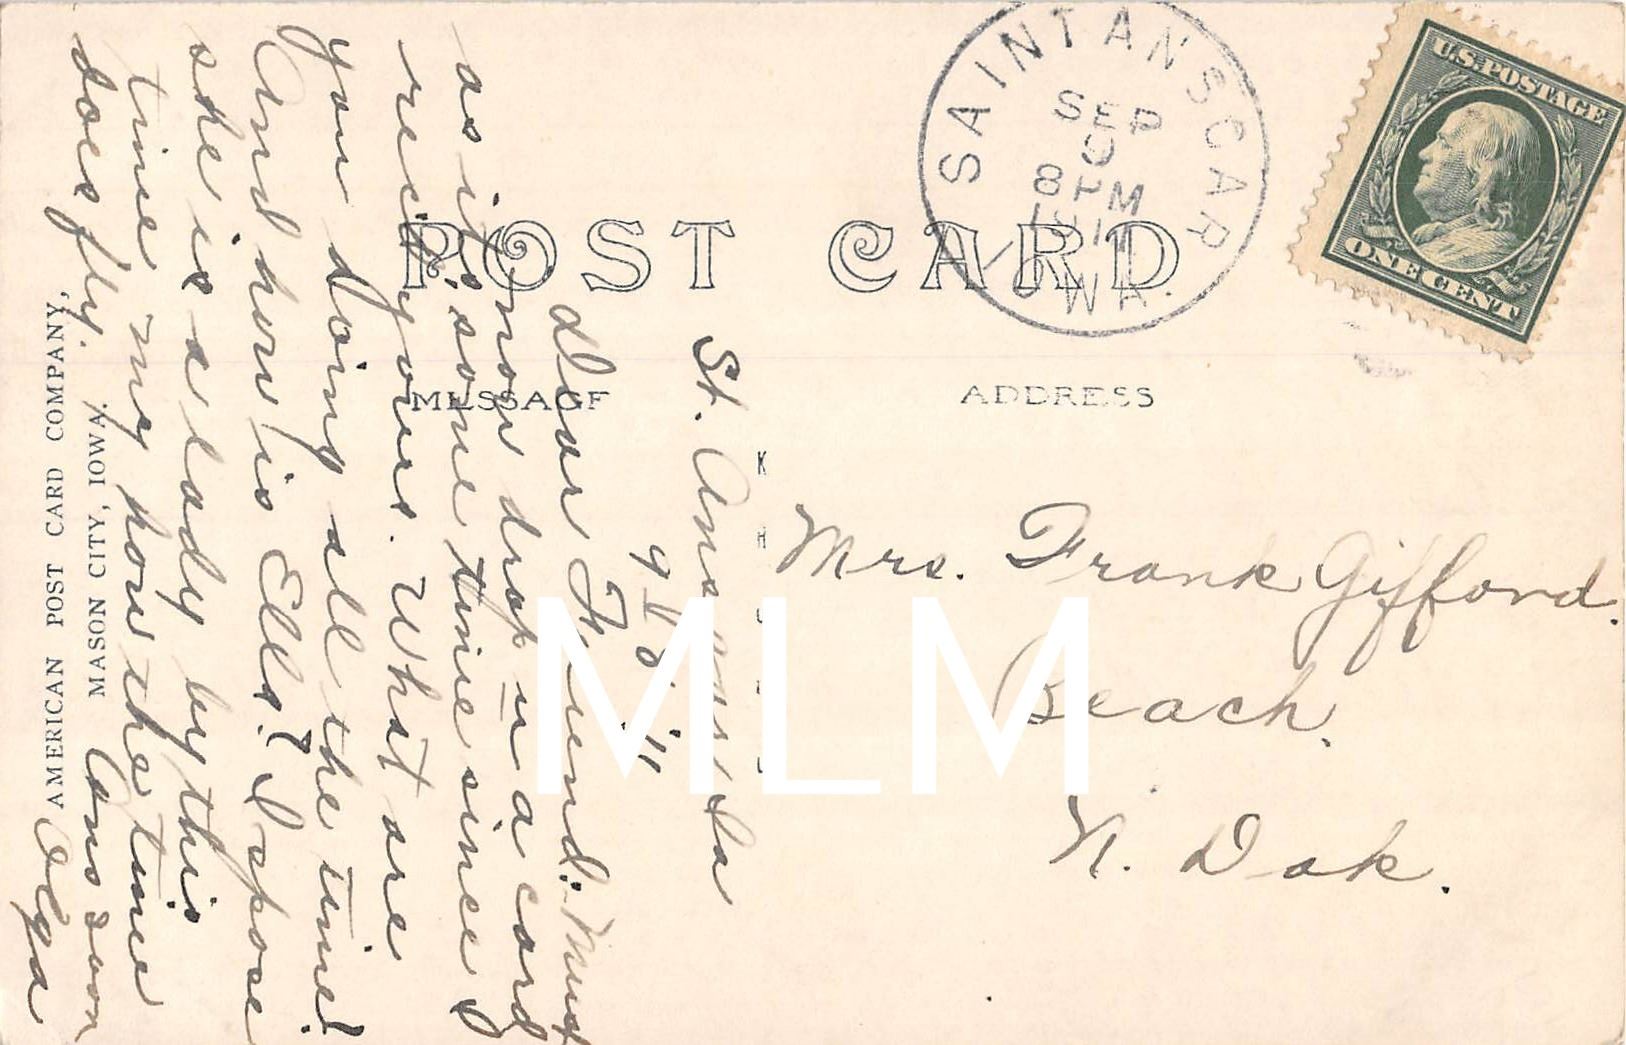 POST CARD
MESSAGE
ADDRESS
SAINT ANSGAR
SEP
8 PM
1911
IOWA.
U.S. POSTAGE
ONE CENT
St. Ansgar, Ia
9
'11
Dear Friend: Must
drop u a card
as it is some time since I
rec'd yours. What are
you doing all the time?
And how is Ella? I spose
she is a lady by this
time my how the time
does fly.
Ans soon
Olga
Mrs. Frank Gifford.
Beach.
N. Dak.
AMERICAN POST CARD COMPANY,
MASON CITY, IOWA.
MLM